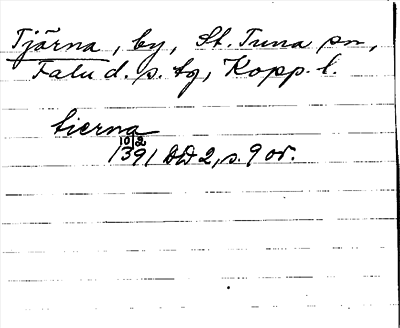 Tjärna, by, St. Tuna sn,
Falu d. s. tg, Kopp. l.
tierna
10/2
1391 DD 2, s. 9 or.